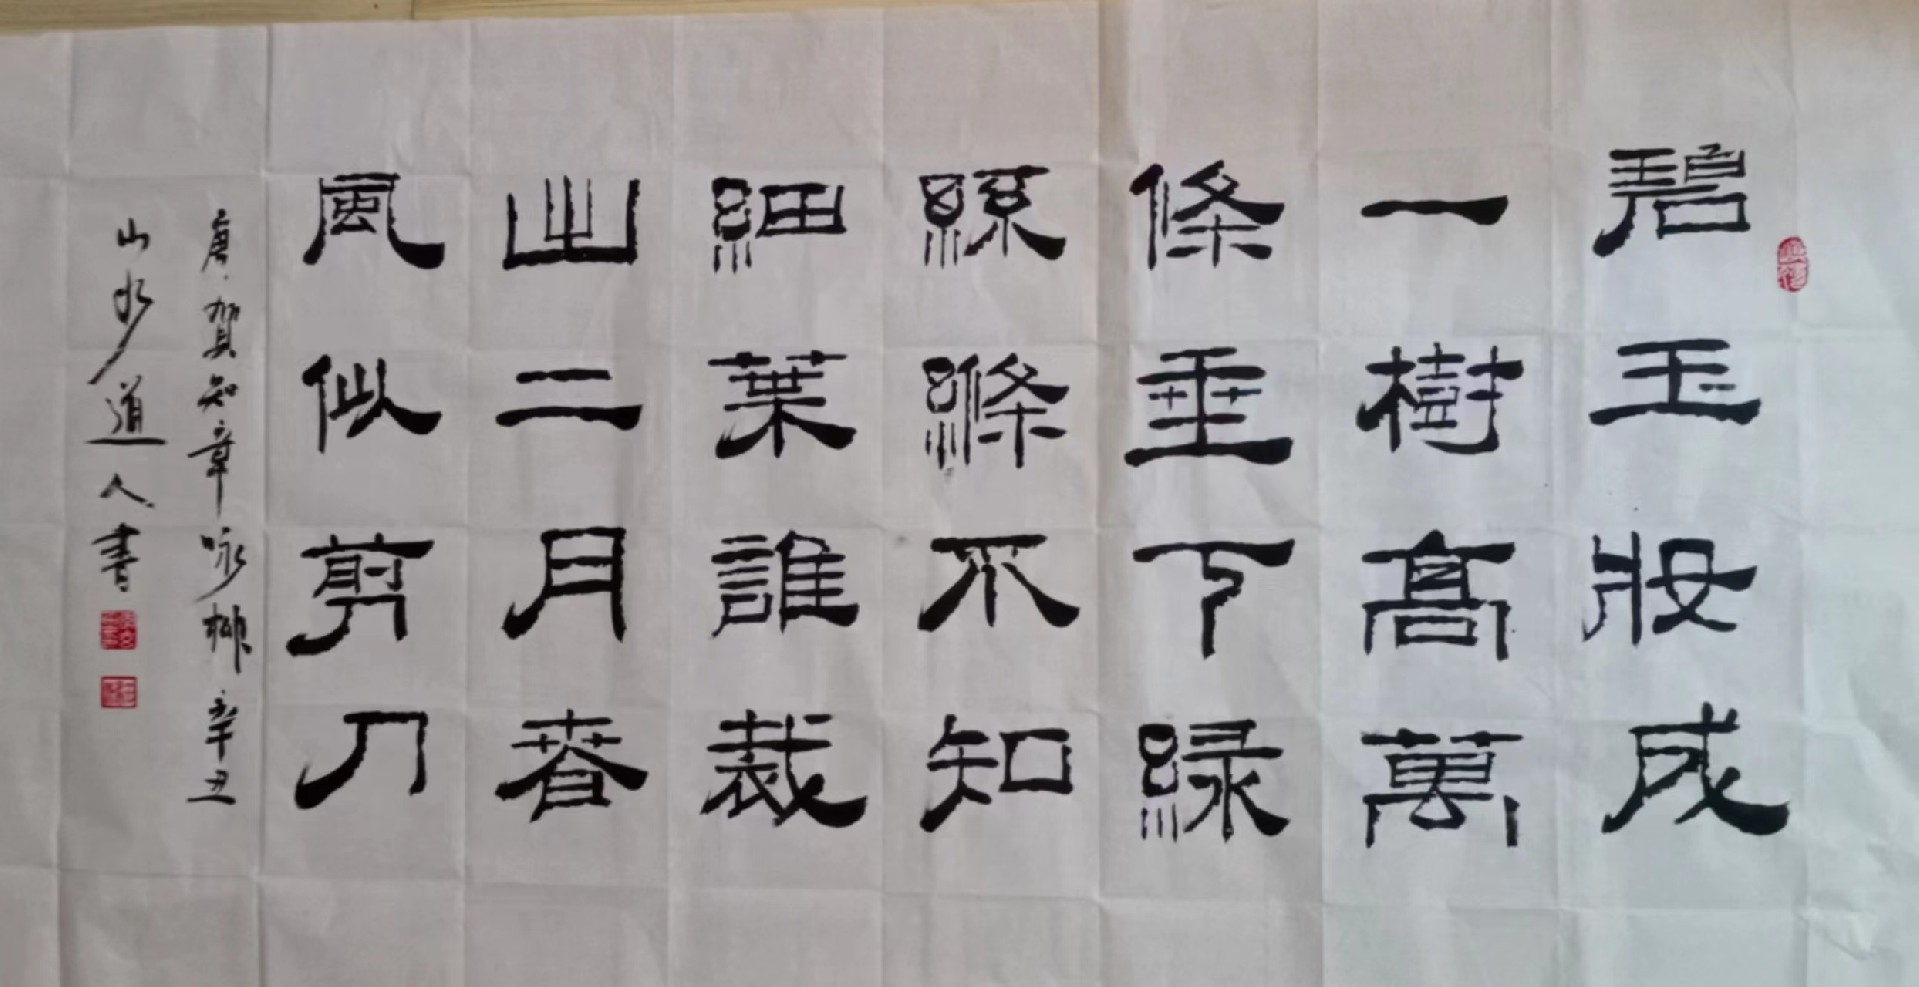 碧玉妝成
一樹髙萬
條垂下緑
絲縧不知
細葉誰裁
出二月春
風似剪刀
唐賀知章咏柳辛丑
山水道人書